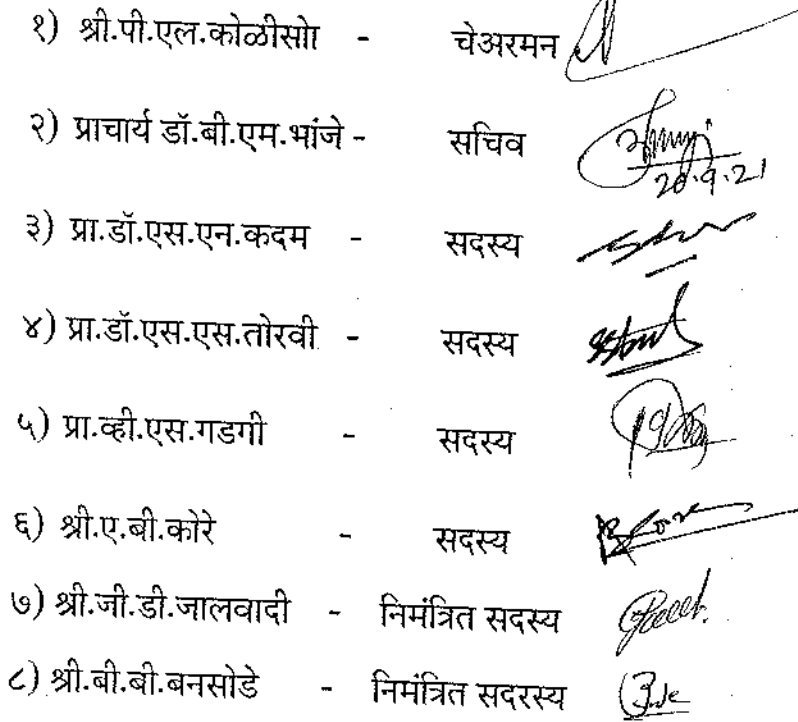 १) श्री.पी.एल.कोळीसाो - चेअरमन
२) प्राचार्य डॉ.बी.एम.भांजे - सचिव
20.9.21
३) प्रा.डॉ.एस.एन.कदम - सदस्य
४) प्रा.डॉ.एस.एस.तोरवी - सदस्य
५) प्रा.व्ही.एस.गडगी - सदस्य
६) श्री.ए.बी.कोरे - सदस्य
७) श्री.जी.डी.जालवादी - निमंत्रित सदस्य
८) श्री.बी.बी.बनसोडे - निमंत्रित सदरस्य